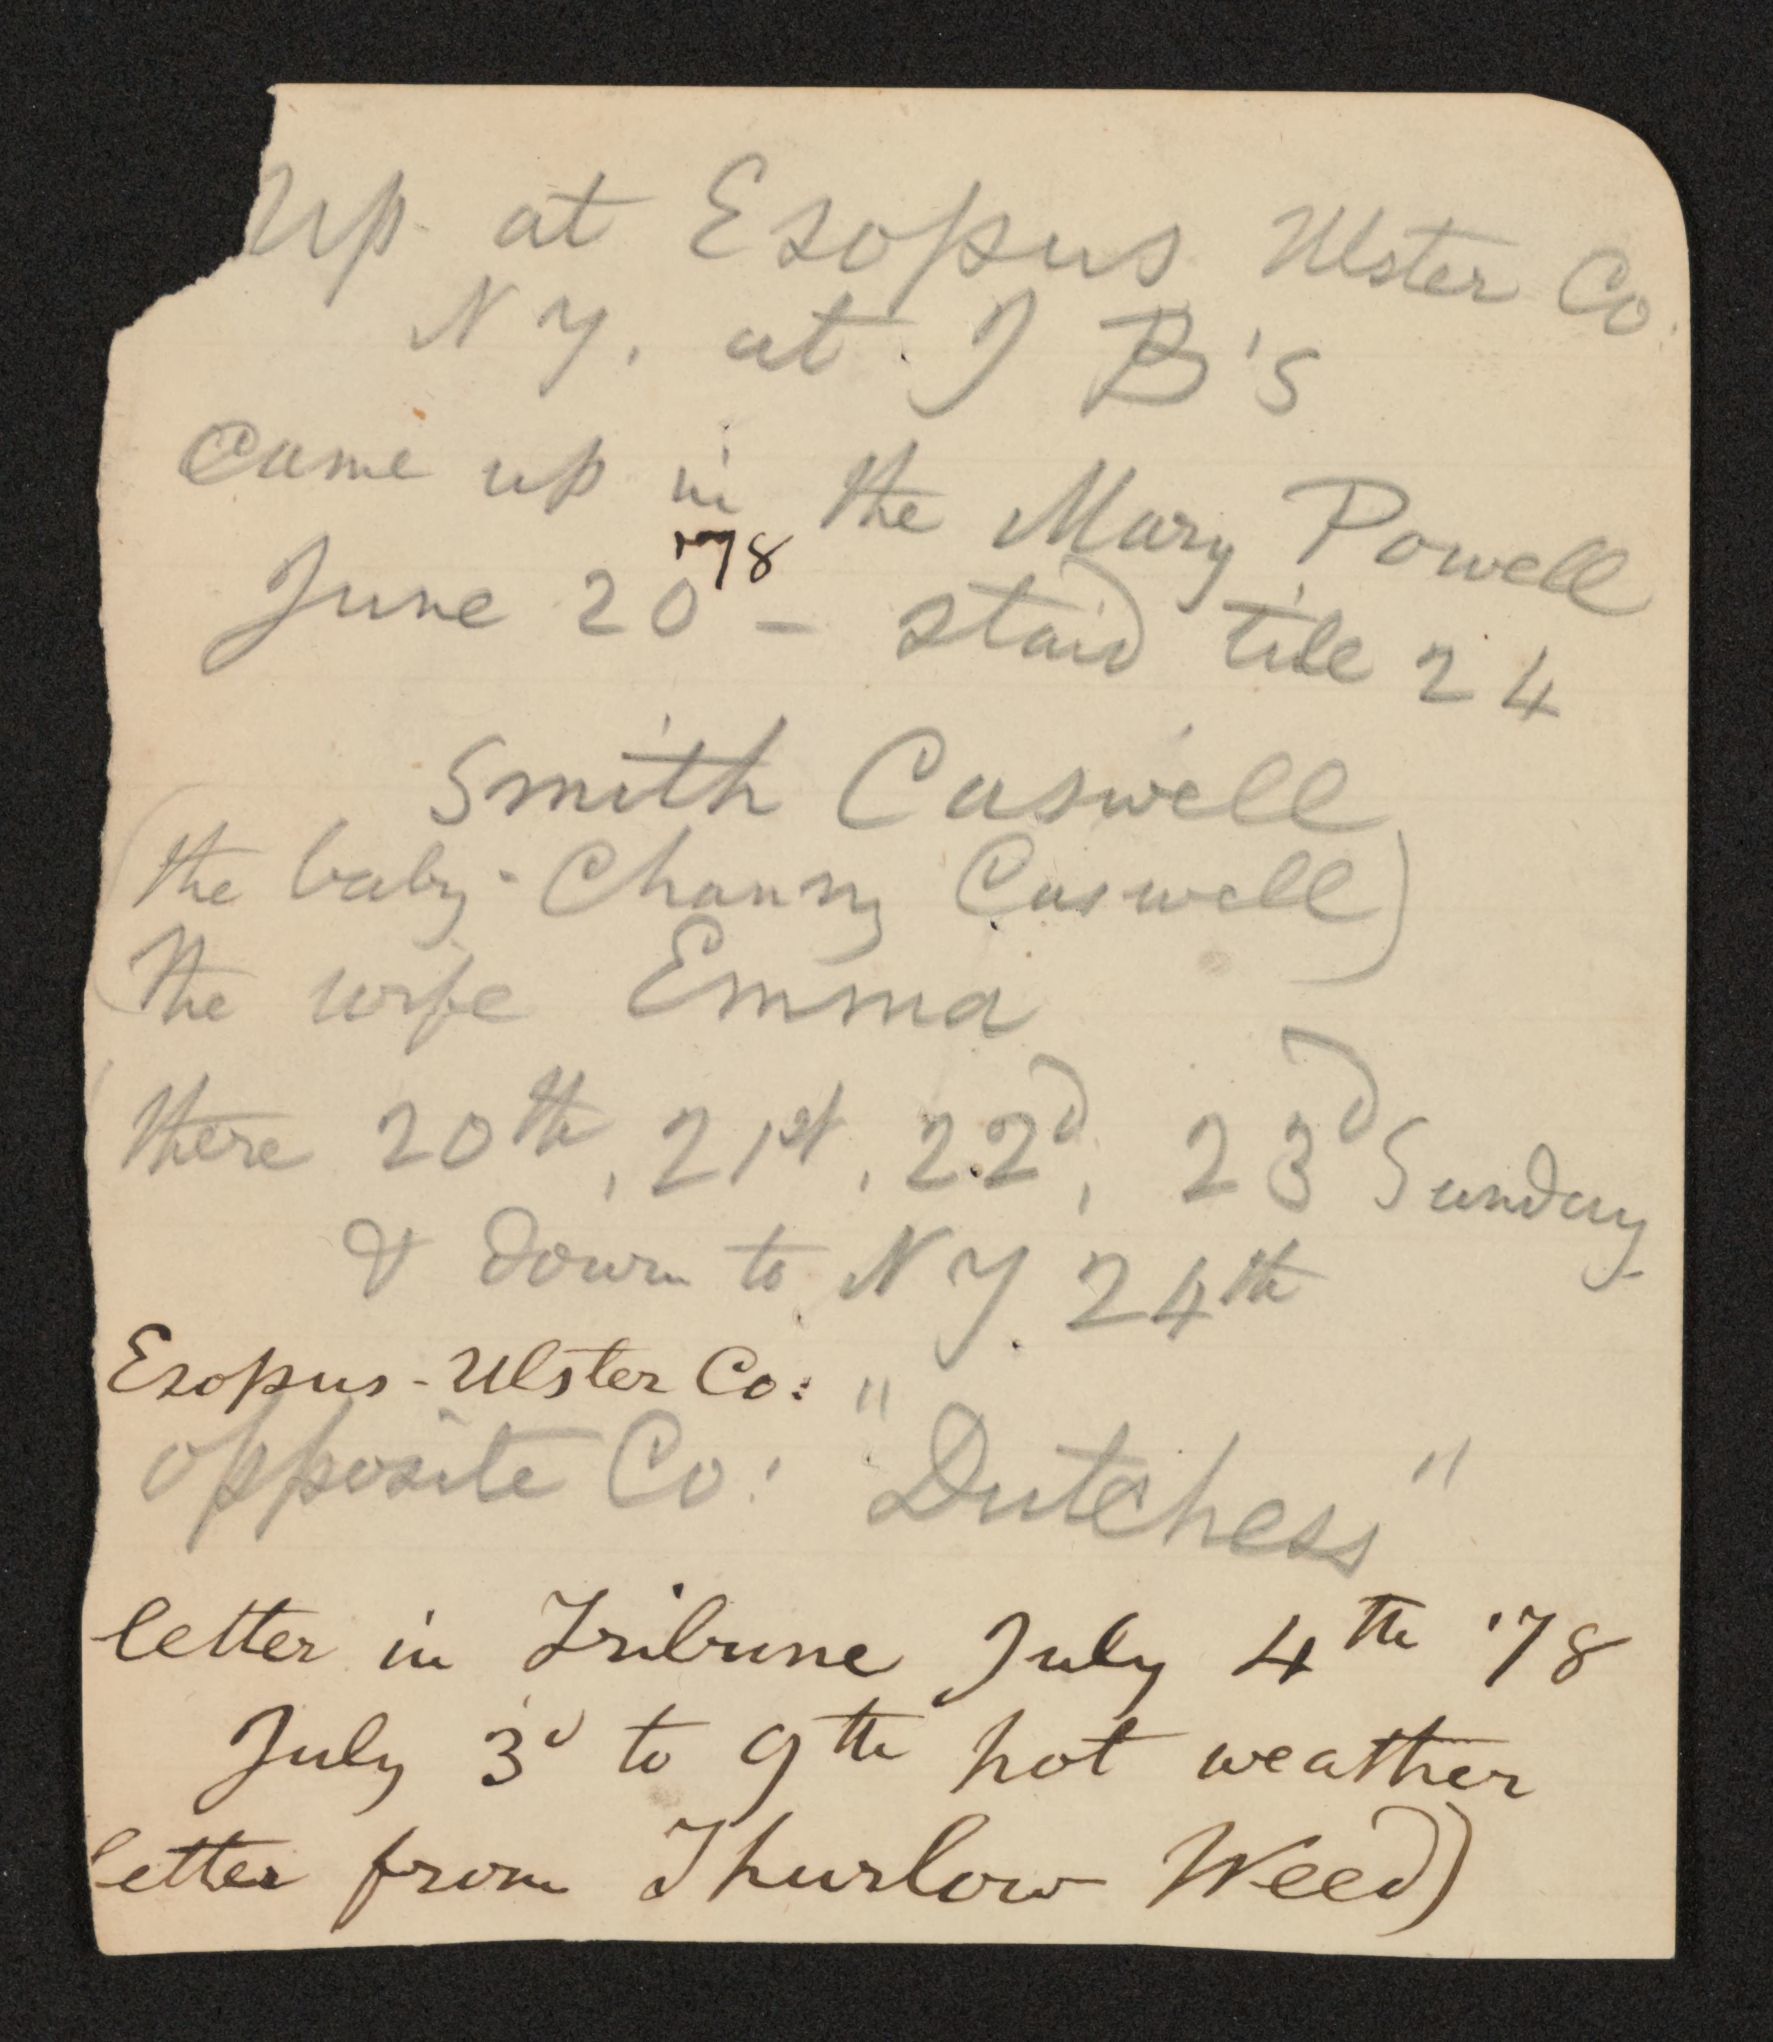 Up at Esopus Ulster Co.
N Y. at J B's
Came up in the Mary Powell
'78
June 20 – staid till 24
Smith Caswell
(the baby - Chauny Caswell)
the wife Emma
there 20th, 21st, 22d, 23d Sunday
& down to N Y. 24th
Esopus - Ulster Co:
opposite Co: "Dutchess"
letter in Tribune July 4th '78
July 3d to 9th hot weather
letter from Thurlow Weed)